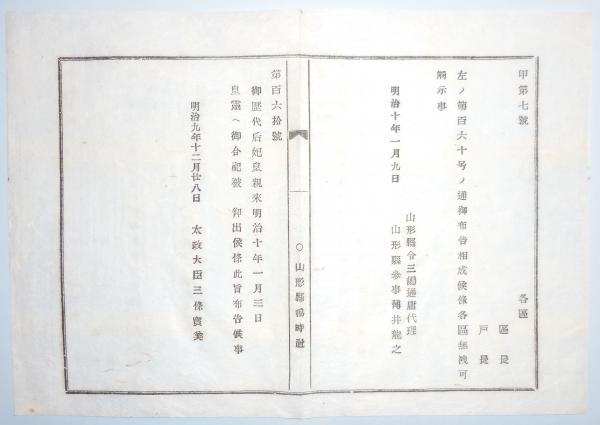 甲第七號
各區
區長
戸長
左ノ第百六十号ノ通御布告相成候條各區無洩可
觸示事
明治十年一月九日
山形縣令三島通庸代理
山形縣參事薄井龍之
○山形縣鵆時社
第百六拾號
御歷代后妃皇親來明治十年一月三日
皇靈ヘ御合祀被 仰出候條此旨布告候事
明治九年十二月廿八日
太政大臣三條實美